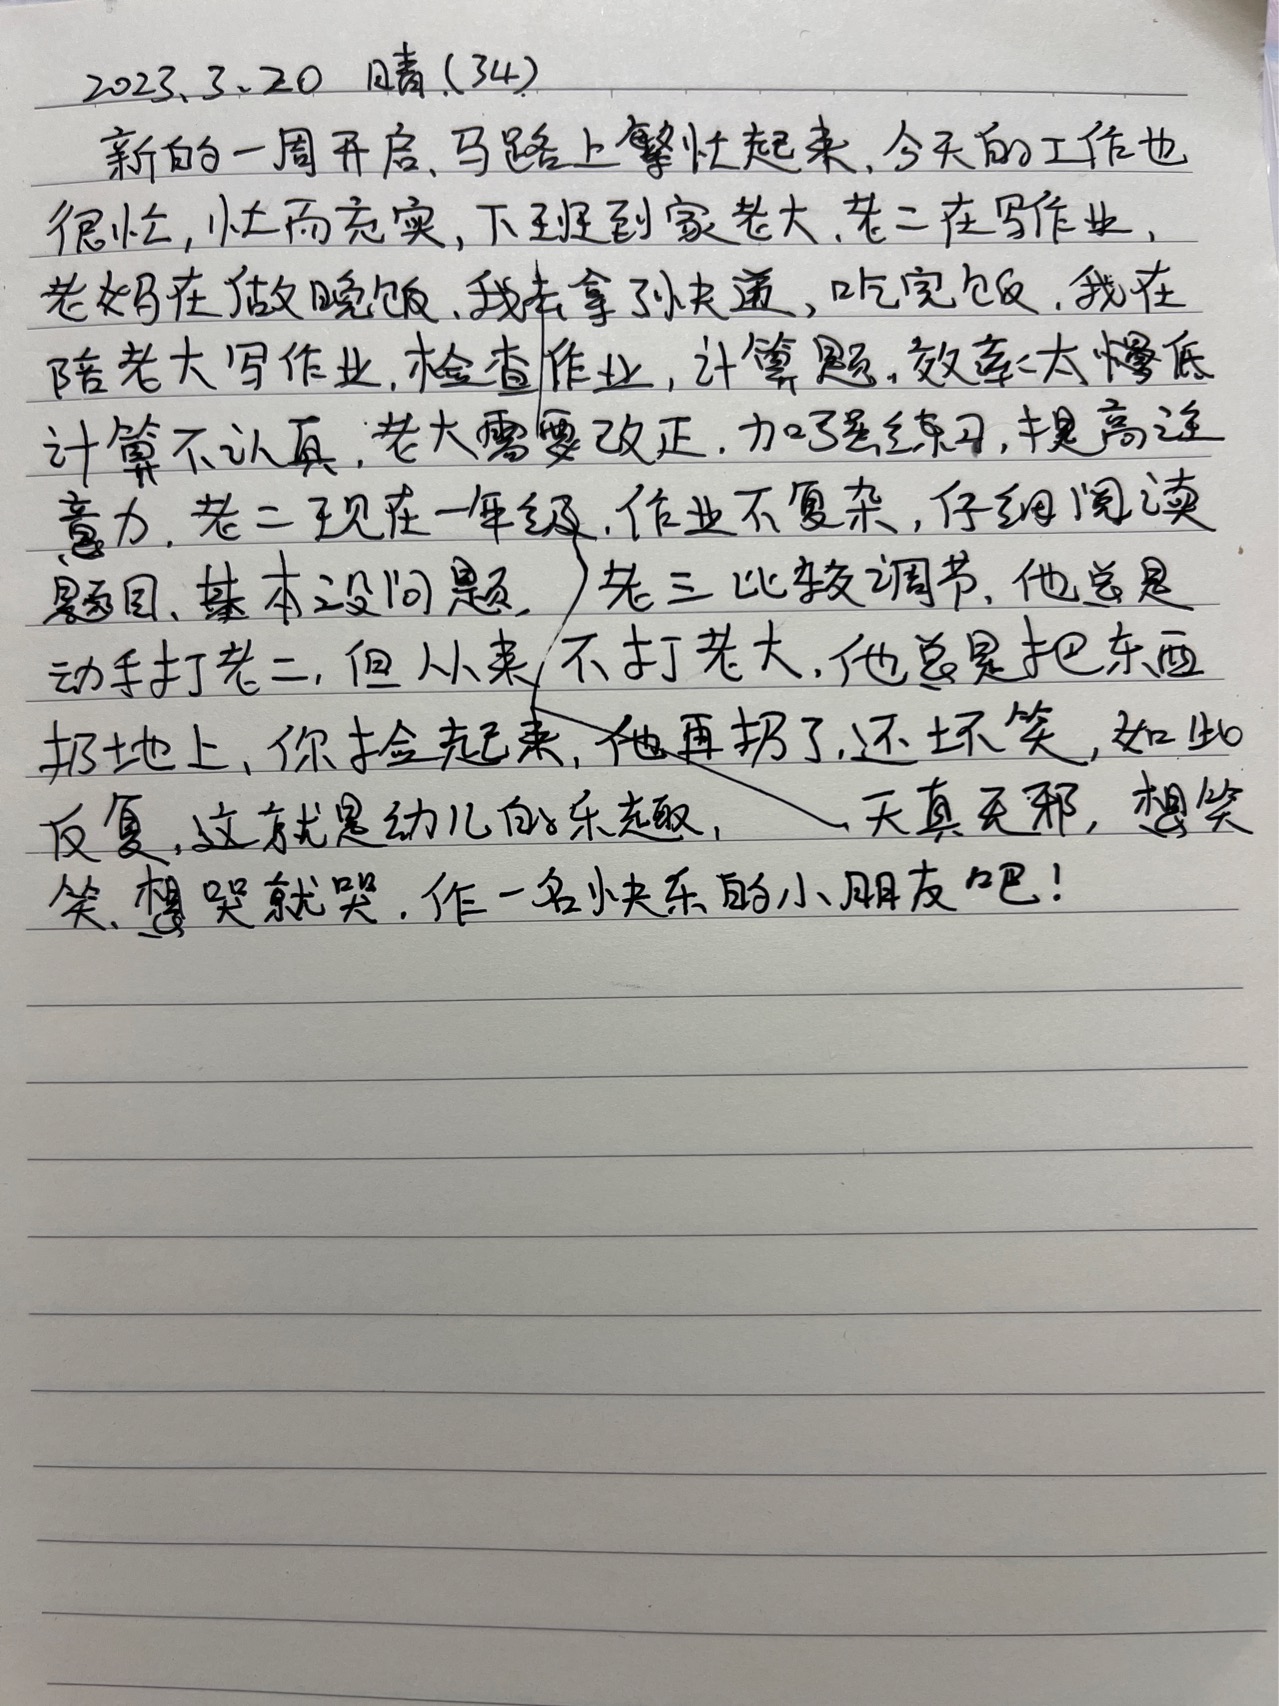 2023.3.20 晴(34)
新的一周开启、马路上繁忙起来、今天的工作也
很忙,忙而充实,下班到家老大、老二在写作业,
老妈在做晚饭、我去拿了快递,吃完饭、我在
陪老大写作业、检查作业,计算题、效率太慢低
计算不认真,老大需要改正、加强练习,提高注
意力、老二现在一年级、作业不复杂,仔细阅读
题目、基本没问题,老三比较调节、他总是
动手打老二,但从来不打老大,他总是把东西
扔地上、你捡起来,他再扔了、还坏笑,如此
反复、这就是幼儿的乐趣,天真无邪,想笑
笑、想哭就哭、作一名快乐的小朋友吧!